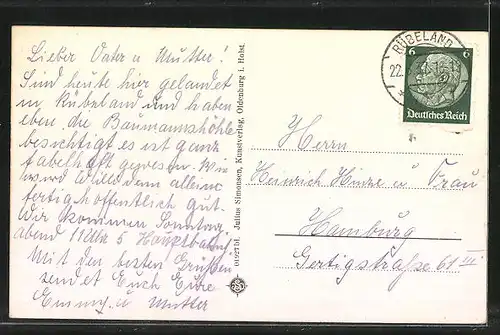 Lieber Vater u Mutter!
Sind heute hier gelandet
in Rübeland und haben
eben die Baumannshöhle
besichtigt es ist ganz
fabelhaft gewesen. Wie
wird Willi denn alleine
fertig hoffentlich gut.
Wir kommen Sonntag
abend 11 Uhr 5 Hauptbahnhf
Mit den besten Grüßen
sendet Euch Eure
Emmy u Mutter
Julius Simonsen, Kunstverlag, Oldenburg i. Holst.
RÜBELAND
22.
6 6
Deutsches Reich
Herrn
Heinrich Hinze u Frau
Hamburg
Gertigstraße 61 III